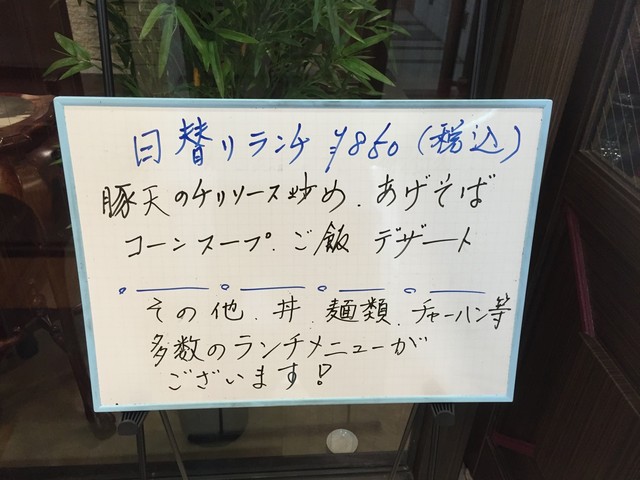 日替りランチ ¥850(税込)
豚天のチリソース炒め、あげそば
コーンスープ、ご飯 デザート
その他、丼、麺類、チャーハン等
多数のランチメニューが
ございます!